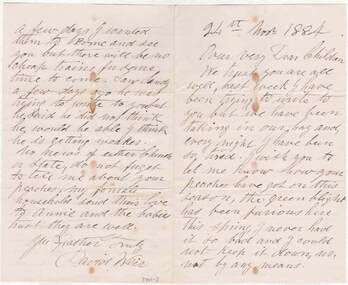 24st Novr 1884
Dear very Dear Children
We hope you are all
well, last week I have
been trying to write to
you but we have been
taking in our hay and
every night I have been
so tired. I wish you to
let me know how your
peaches have got on this
season, the green blight
has been furious here
this spring I never had
it so bad and I could
not keep it down, no,
not by any means.
a few days I wanted
them to come and see
you but there will be no
cheap trains for some
time to come
a few days ago he was
trying to write to you but
he said he did not think
he would be able I think
he is getting weaker.
no news of either
of late, do not forget
to tell me about your
peaches, my
household send their love
to Annie and the babes
hope they are well.
Yr Father
David Weir